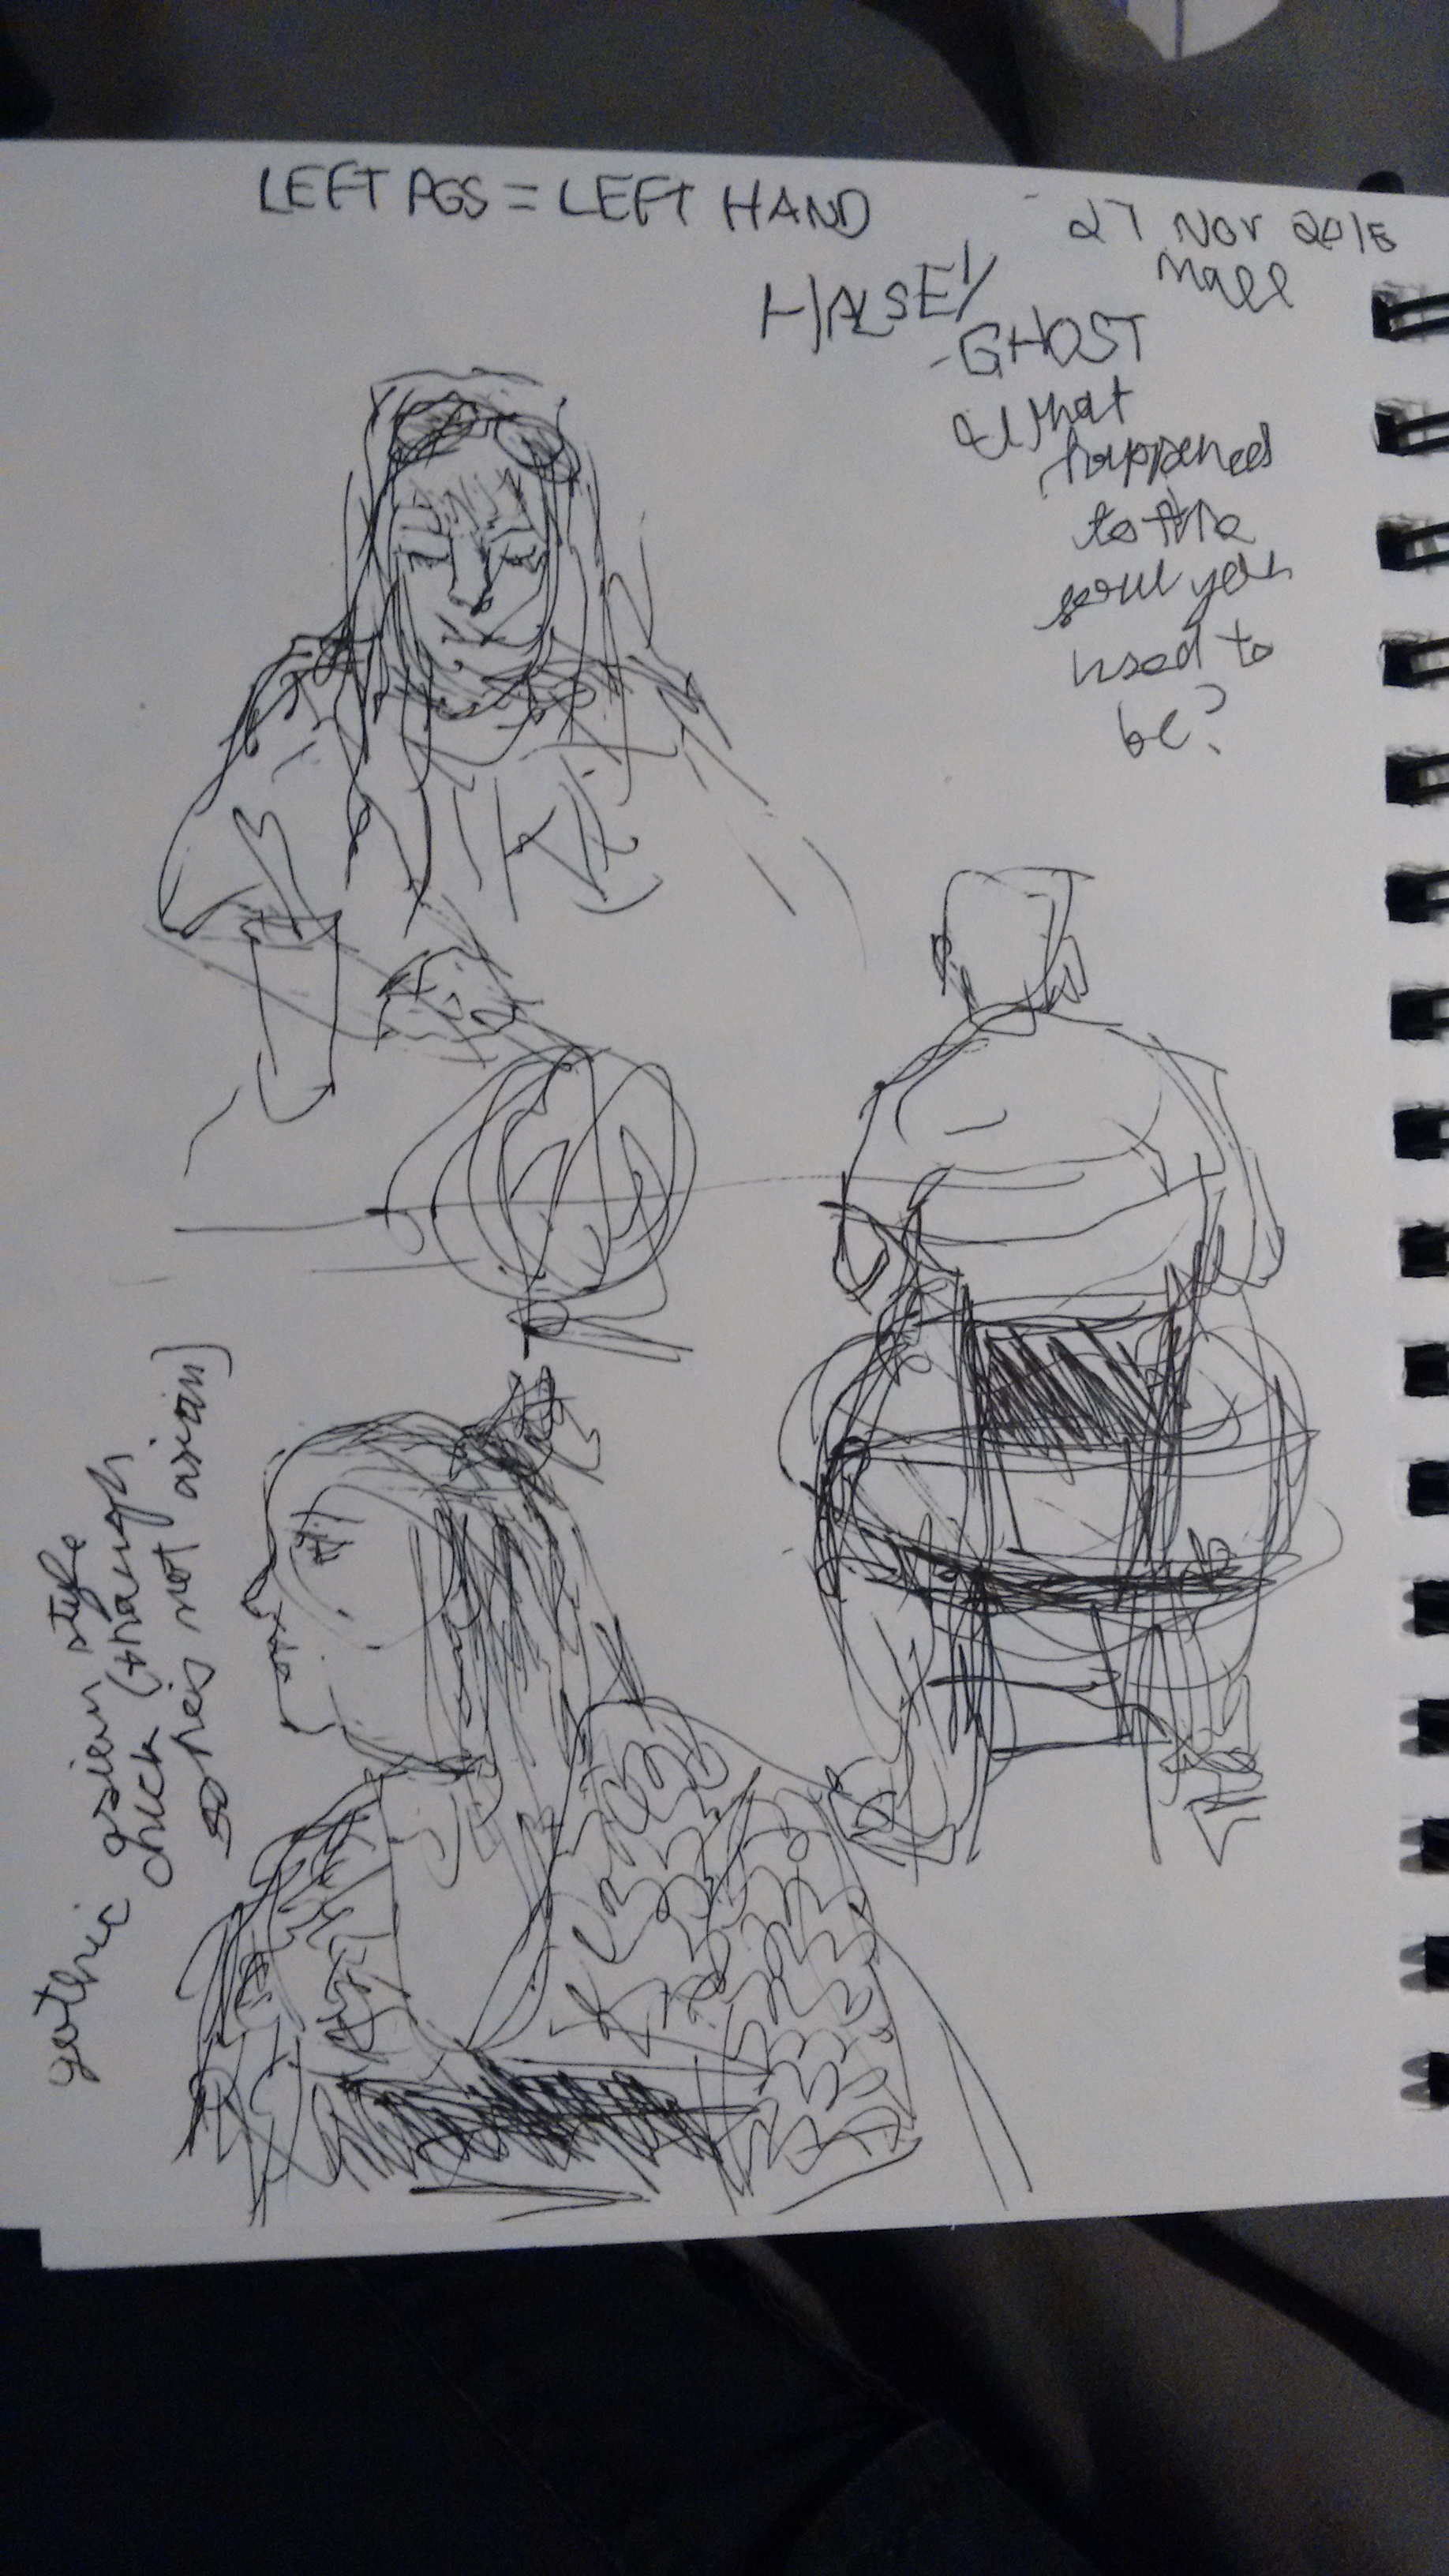 LEFT PGS = LEFT HAND
27 Nov 2015
Mall
HALSEY
-GHOST
What
happened
to the
soul you
used to
be?
gothic asian style
chick (though
she's not asian)